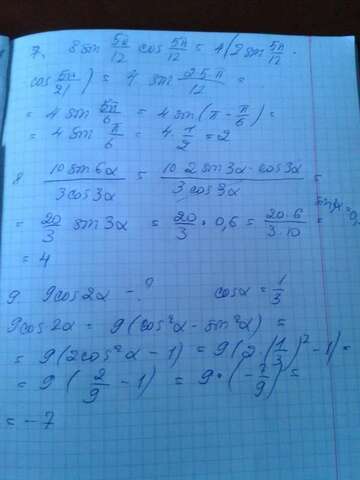 7. 8 sin 5π/12 cos 5π/12 = 4(2 sin 5π/12 ·
cos 5π/21) = 4 · sin 2·5π/12 =
= 4 sin 5π/6 = 4 sin(π - π/6) =
= 4 sin π/6 = 4 · 1/2 = 2
8 10 sin 6α / 3 cos 3α = 10 · 2 sin 3α · cos 3α / 3 cos 3α =
= 20/3 sin 3α = 20/3 · 0,6 = 20·6 / 3·10 =
= 4
9. 9cos2α - ? cosα = 1/3
9cos2α = 9(cos²α - sin²α) =
= 9(2cos²α - 1) = 9(2·(1/3)² - 1) =
= 9(2/9 - 1) = 9·(-7/9) =
= -7